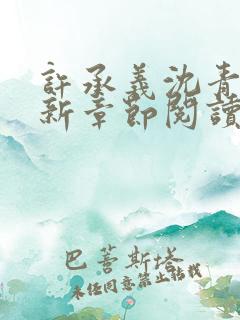 許承義沈青
新章節閱讀
巴菩斯塔
未經同意禁止轉載